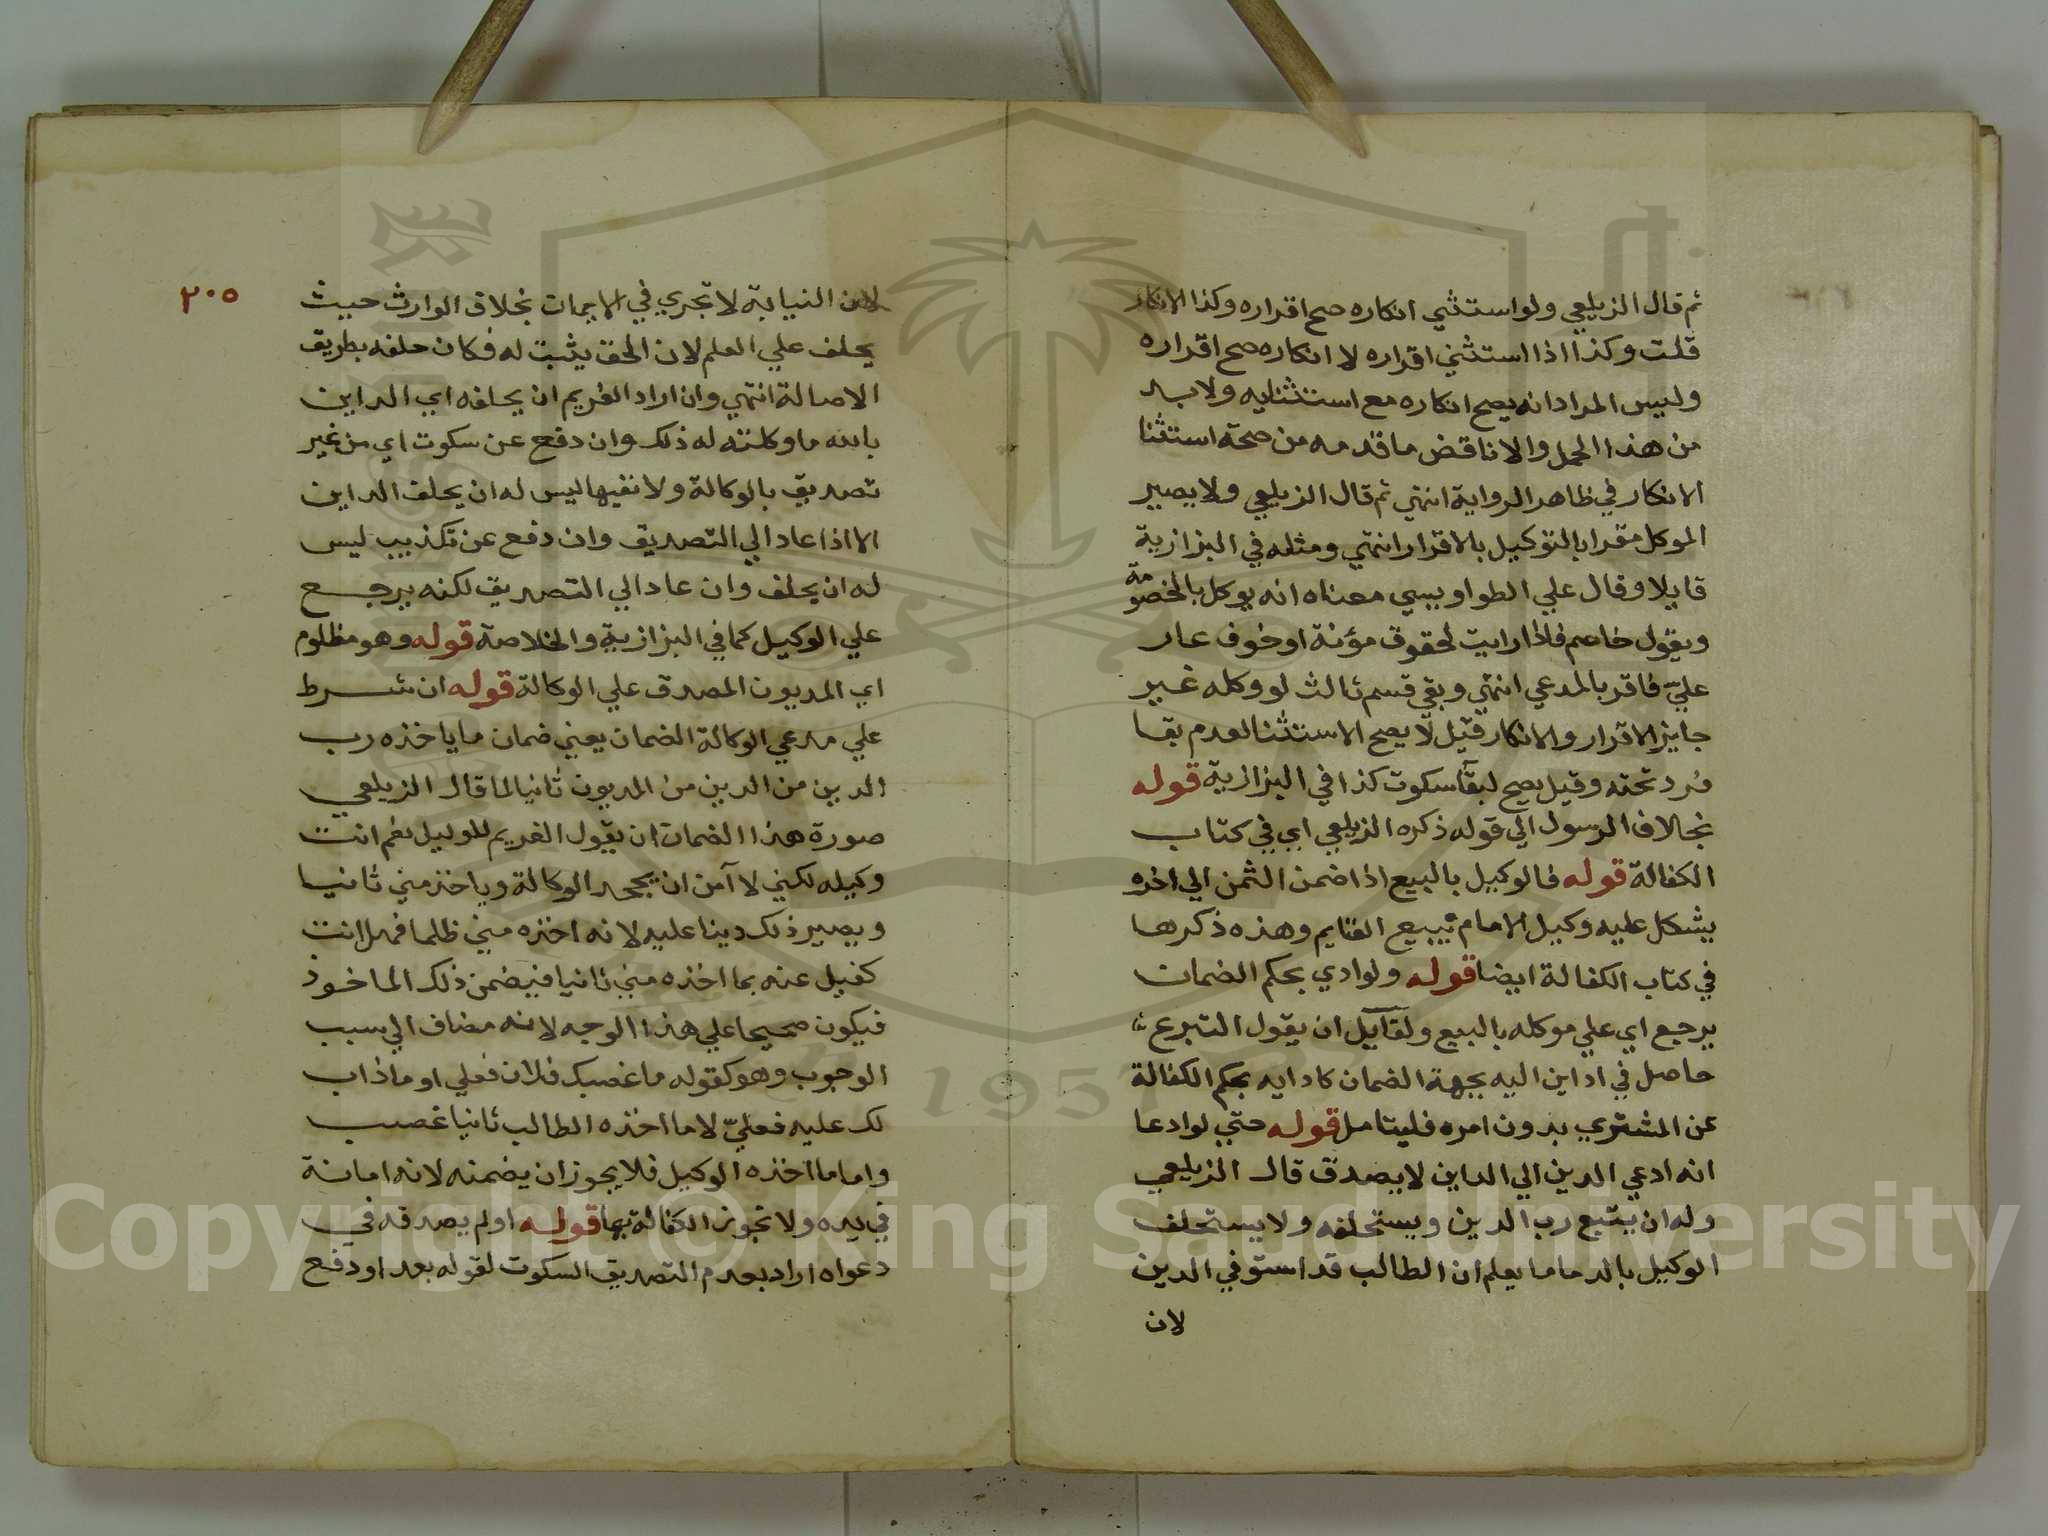 ثم قال الزيلعي ولو استثني انكاره صح اقراره وكذا الانكار
قلت وكذا اذا استثني اقراره لا انكاره صح اقراره
وليس المراد انه يصح انكاره مع استثنايه ولا بد
من هذا الحمل والا ناقض ما قدمه من صحة استثنا
الانكار في ظاهر الرواية انتهي ثم قال الزيلعي ولا يصير
الموكل مقرا بالتوكيل بالاقرار انتهي ومثله في البزازية
قايلا وقال علي الطواويسي معناه انه يوكل بالخصومة
ويقول خاصم فاذا رايت لحقوق مؤنة او خوف عار
عليّ فاقر بالمدعي انتهي وبقي قسم ثالث لو وكله غير
جايز الاقرار والانكار قيل لا يصح الاستثنا لعدم بقا
فرد تحته وقيل يصح لبقا سكوت كذا في البزازية قوله
بخلاف الرسول الي قوله ذكره الزيلعي اي في كتاب
الكفالة قوله فالوكيل بالبيع اذا ضمن الثمن الي اخره
يشكل عليه وكيل الامام ببيع الغنايم وهذه ذكرها
في كتاب الكفالة ايضا قوله ولو ادي بحكم الضمان
يرجع اي علي موكله بالبيع ولقايل ان يقول التبرع
حاصل في اداين اليه بجهة الضمان كادايه بحكم الكفالة
عن المشتري بدون امره فليتامل قوله حتي لو ادعا
انه ادعي الدين الي الداين لا يصدق قال الزيلعي
وله ان يتبع رب الدين ويستحلفه ولا يستحلف
الوكيل بالد ماما يعلم ان الطالب قد استوفي الدين
لان
٢٠٥
لان النيابة لا تجري في الايمان بخلاف الوارث حيث
يحلف علي العلم لان الحق يثبت له فكان حلفه بطريق
الاصالة انتهي وان اراد الغريم ان يحلفه اي الداين
بالله ما وكلته له ذلك وان دفع عن سكوت اي من غير
تصديق بالوكالة ولا نفيها ليس له ان يحلف الداين
الا اذا عاد الي التصديق وان دفع عن تكذيب ليس
له ان يحلف وان عاد الي التصديق لكنه يرجع
علي الوكيل كما في البزازية والخلاصة قوله وهو مظلوم
اي المديون المصدق علي الوكالة قوله ان شرط
علي مدعي الوكالة الضمان يعني ضمان ما ياخذه رب
الدين من الدين من المديون ثانيا لما قال الزيلعي
صورة هذا الضمان ان يقول الغريم للوكيل نعم انت
وكيله لكني لا آمن ان يجحد الوكالة وياخذ مني ثانيا
ويصير ذلك دينا عليه لانه اخذه مني ظلما فهل انت
كفيل عنه بما اخذه مني ثانيا فيضمن ذلك الماخوذ
فيكون صحيحا علي هذا الوجه لانه مضاف الي سبب
الوجوب وهو كقوله ما غصبك فلان فعلي او ما ذاب
لك عليه فعليّ لا ما اخذه الطالب ثانيا غصب
واما ما اخذه الوكيل فلا يجوز ان يضمنه لانه امانة
في يده ولا تجوز الكفالة بها قوله او لم يصدقه في
دعواه اراد بعدم التصديق السكوت لقوله بعد او دفع
1957
Copyright © King Saud University